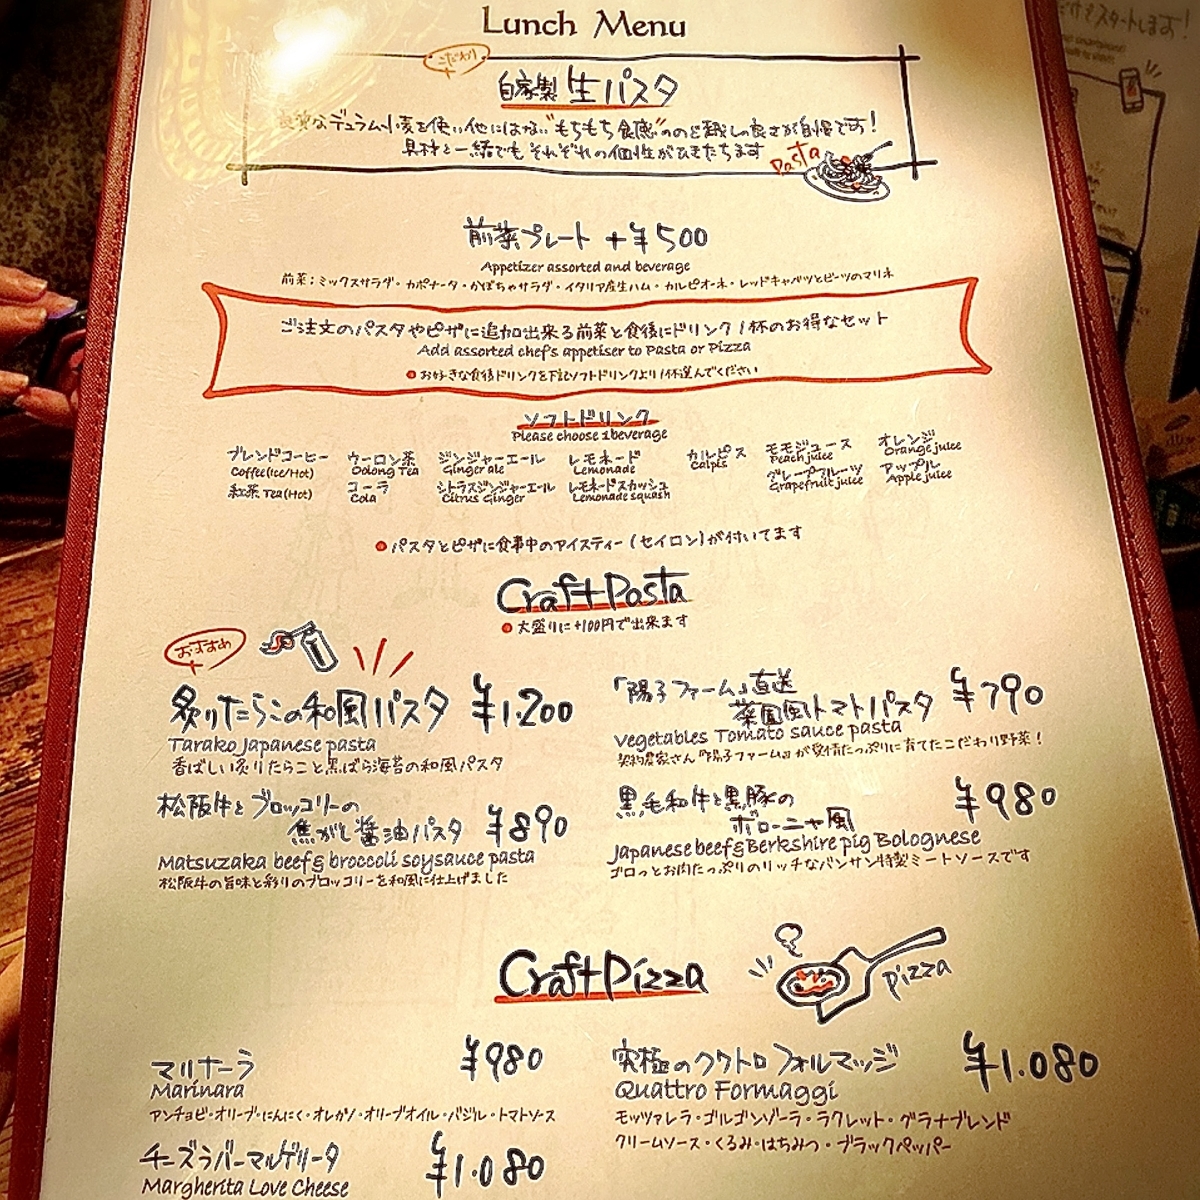 Lunch Menu
こだわり
自家製 生パスタ
良質なデュラム小麦を使い他にはない"もちもち食感"ののど越しの良さが自慢です!
具材と一緒でもそれぞれの個性がひきたちます
Pasta
前菜プレート +¥500
Appetizer assorted and beverage
前菜:ミックスサラダ・カポナータ・かぼちゃサラダ・イタリア産生ハム・カルピオーネ・レッドキャベツとビーツのマリネ
ご注文のパスタやピザに追加出来る前菜と食後にドリンク1杯のお得なセット
Add assorted chef's appetiser to Pasta or Pizza
●お好きな食後ドリンクを下記ソフトドリンクより1杯選んでください
ソフトドリンク
Please choose 1beverage
ブレンドコーヒー ウーロン茶 ジンジャーエール レモネード カルピス モモジュース オレンジ
Coffee(Ice/Hot) Oolong Tea Ginger ale Lemonade Calpis Peach juice Orange juice
紅茶 Tea(Hot) コーラ シトラスジンジャーエール レモネードスカッシュ グレープフルーツ アップル
Cola Citrus Ginger Lemonade squash Grapefruit juice Apple juice
●パスタとピザに食事中のアイスティー(セイロン)が付いてます
Craft Pasta
●大盛りに+100円で出来ます
おすすめ
炙りたらこの和風パスタ ¥1.200
Tarako Japanese pasta
香ばしい炙りたらこと黒ばら海苔の和風パスタ
「陽子ファーム」直送
菜園風トマトパスタ ¥790
Vegetables Tomato sauce pasta
契約農家さん『陽子ファーム』が愛情たっぷりに育てたこだわり野菜!
松阪牛とブロッコリーの
焦がし醤油パスタ ¥890
Matsuzaka beef&broccoli soysauce pasta
松阪牛の旨味と彩りのブロッコリーを和風に仕上げました
黒毛和牛と黒豚の
ボローニャ風 ¥980
Japanese beef&Berkshire pig Bolognese
ゴロっとお肉たっぷりのリッチなバンサン特製ミートソースです
Craft Pizza
pizza
マリナーラ ¥980
Marinara
アンチョビ・オリーブ・にんにく・オレガノ・オリーブオイル・バジル・トマトソース
究極のクワトロ フォルマッジ ¥1.080
Quattro Formaggi
モッツァレラ・ゴルゴンゾーラ・ラクレット・グラナブレンド
クリームソース・くるみ・はちみつ・ブラックペッパー
チーズラバーマルゲリータ ¥1.080
Margherita Love Cheese